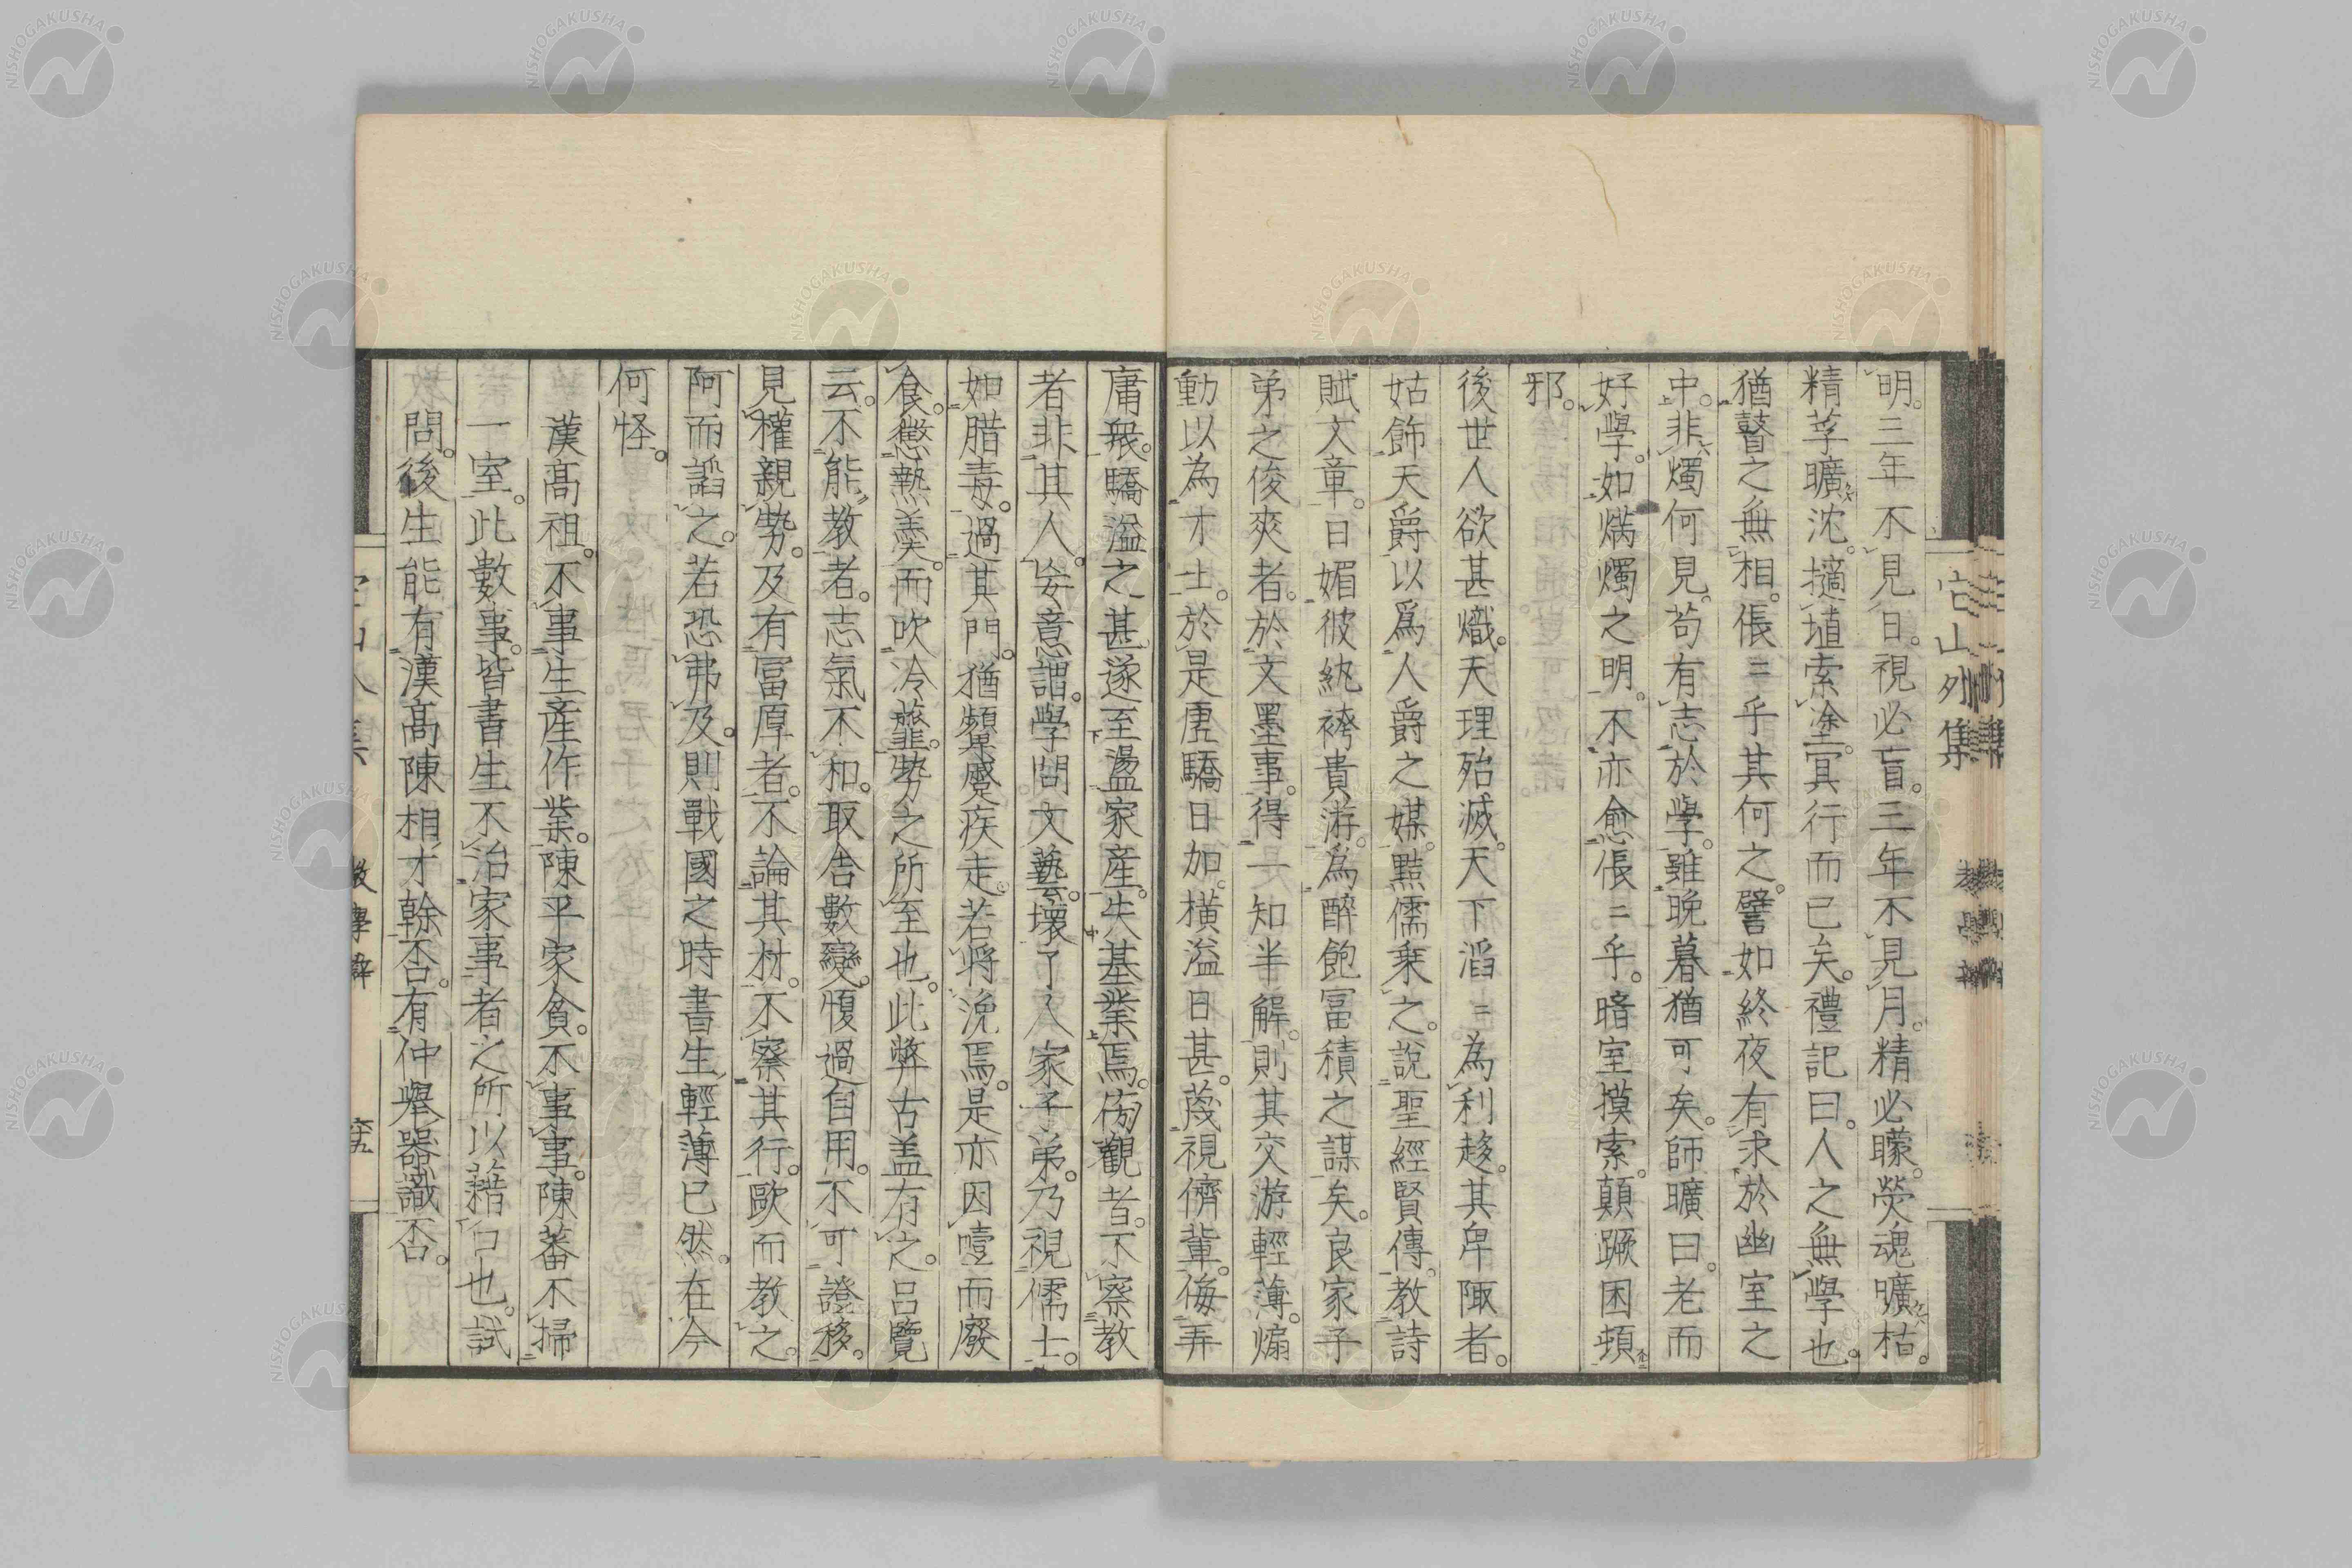 明。三年不見日。視必盲。三年不見月。精必矇。熒魂曠枯。
精莩曠沈。擿埴索塗。冥行而已矣。禮記曰。人之無學也。
猶瞽之無相。倀〻乎其何之。譬如終夜有求於幽室之
中。非燭何見。苟有志於學。雖晚暮猶可矣。師曠曰。老而
好學。如炳燭之明。不亦愈倀〻乎。暗室摸索。顛蹶困頓
邪。
後世人欲甚熾。天理殆滅。天下滔〻為利趍。其卑陬者。
姑飾天爵以爲人爵之媒。黠儒乗之。說聖經賢傳。教詩
賦文章。日媚彼紈袴貴游。爲醉飽冨積之謀矣。良家子
弟之俊爽者。於文墨事。得一知半解。則其交游輕薄。煽
動以為才士。於是虛驕日加。橫溢日甚。蔑視儕輩。侮弄
庸衆。驕溢之甚。遂至盪家產。失基業焉。傍觀者。不察教
者非其人。妄意謂。學問文藝。壞了人家子弟。乃視儒士。
如腊毒。過其門。猶顰蹙疾走。若將浼焉。是亦因噎而廢
食。懲熱羹。而吹冷虀。勢之所至也。此弊古盖有之。吕覽
云。不能教者。志氣不和。取舎數變。愎過自用。不可證移。
見權親勢。及有冨厚者。不論其材。不察其行。歐而教之。
阿而謟之。若恐弗及。則戰國之時書生輕薄已然。在今
何怪。
漢髙祖。不事生產作業。陳平家貧。不事事。陳蕃不掃
一室。此數事。皆書生不治家事者之所以藉口也。試
問。後生能有漢髙陳相才幹否。有仲舉器識否。